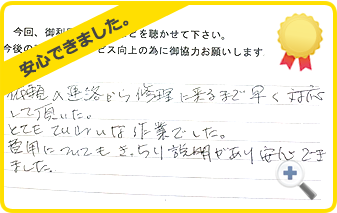 安心できました。
今回、御利
とを聴かせて下さい。
今後の
ビス向上の為に御協力お願いします
依頼の連絡から修理に来るまで早く対応
して頂いた。
とてもていねいな作業でした。
費用についてもきっちり説明があり安心でき
ました。